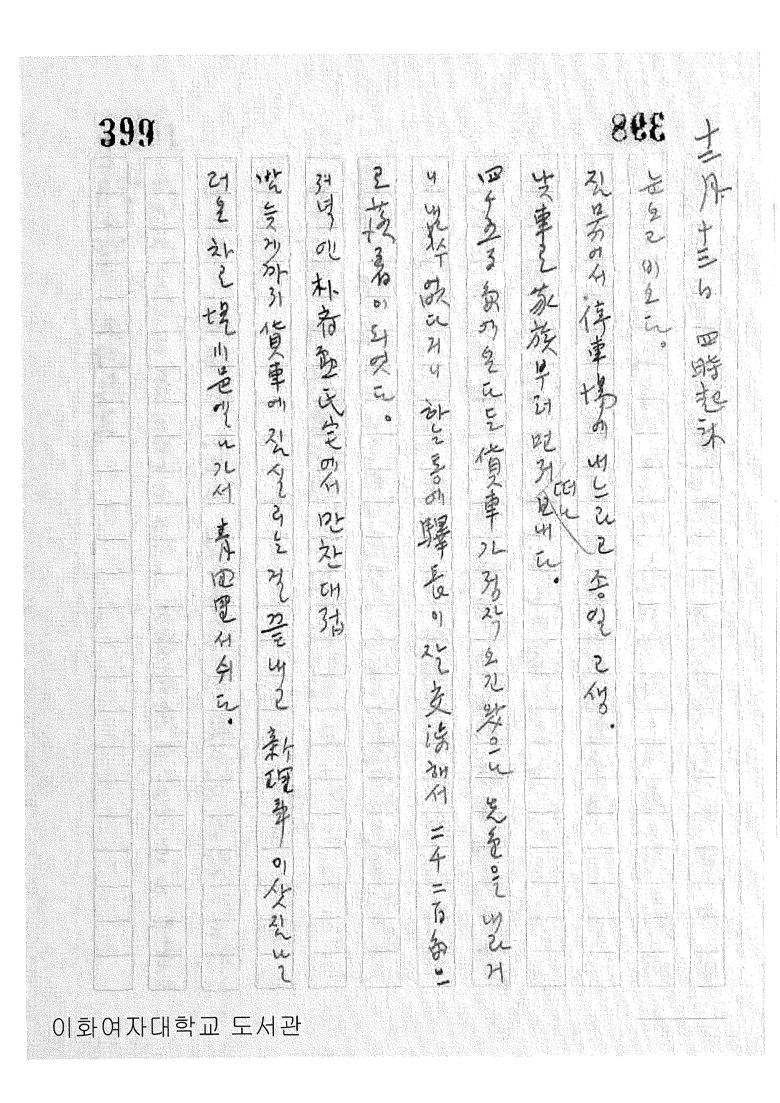 398
十二月 十三日 四時起床
눈오고 비오다。
짐 묶어서 停車場에 내느라고 종일 고생.
낮車로 家族부터 먼저 떠나보내다.
四千五百 원에 온다든 貨車가 정작 오긴 왔으나 은 을 내라거
니 낼수 없다거니 하는통에 驛長이 잘 交涉해서 二千二百 원으
로 落着이 되엿다。
저녁엔 朴 氏宅에서 만찬 대접
밤 늦게까지 貨車에 짐 실리는 걸 끝내고 新 이삿짐 날
러온 차로 邑엘 나가서 靑 서 쉬다.
399
이화여자대학교 도서관